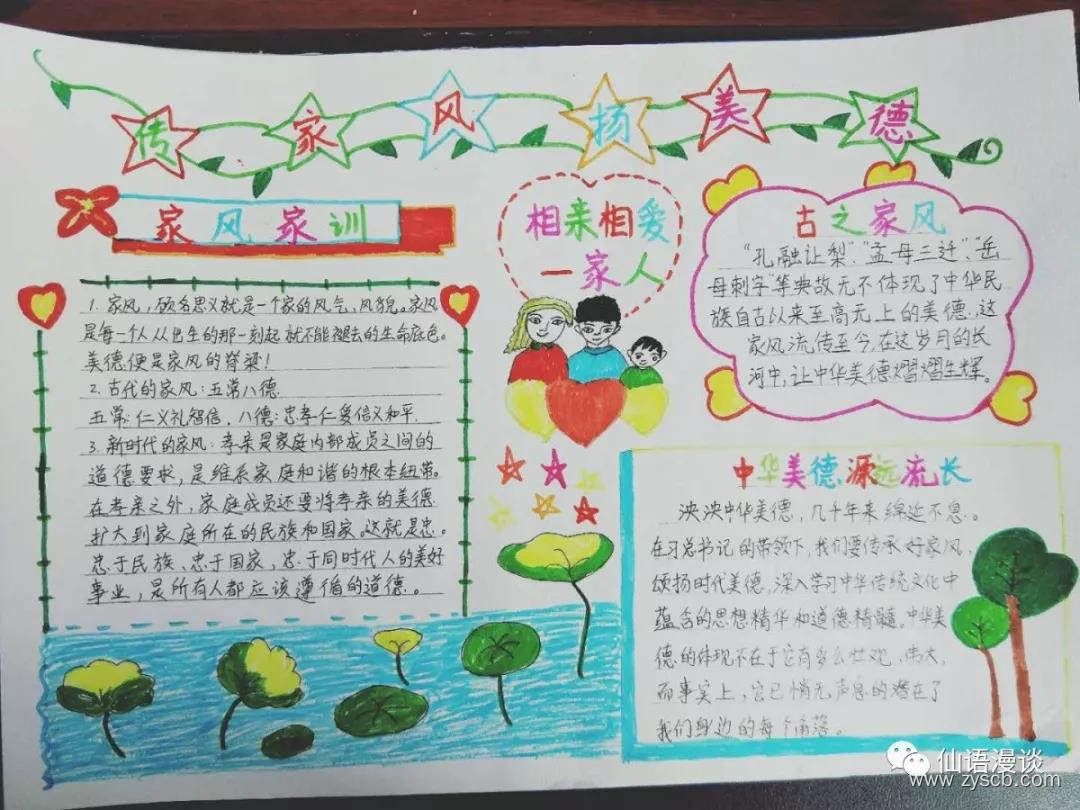 传家风扬美德
家风家训
1. 家风，顾名思义就是一个家的风气，风貌。家风
是每一个人从出生的那一刻起就不能褪去的生命底色。
美德便是家风的脊梁！
2. 古代的家风：五常八德.
五常：仁义礼智信，八德：忠孝仁爱信义和平.
3. 新时代的家风：孝亲是家庭内部成员之间的
道德要求，是维系家庭和谐的根本纽带。
在孝亲之外，家庭成员还要将孝亲的美德
扩大到家庭所在的民族和国家。这就是忠。
忠于民族、忠于国家，忠于同时代人的美好
事业，是所有人都应该遵循的道德。
相亲相爱
一家人
古之家风
“孔融让梨”、“孟母三迁”、“岳
母刺字”等典故无不体现了中华民
族自古以来至高无上的美德，这
家风流传至今，在这岁月的长
河中，让中华美德熠熠生辉。
中华美德源远流长
泱泱中华美德，几千年来绵延不息。
在习总书记的带领下，我们要传承好家风，
颂扬时代美德，深入学习中华传统文化中
蕴含的思想精华和道德精髓。中华美
德的体现不在于它有多么壮观，伟大，
而事实上，它已悄无声息的潜在了
我们身边的每个角落。
仙语漫谈
www.zyscb.com